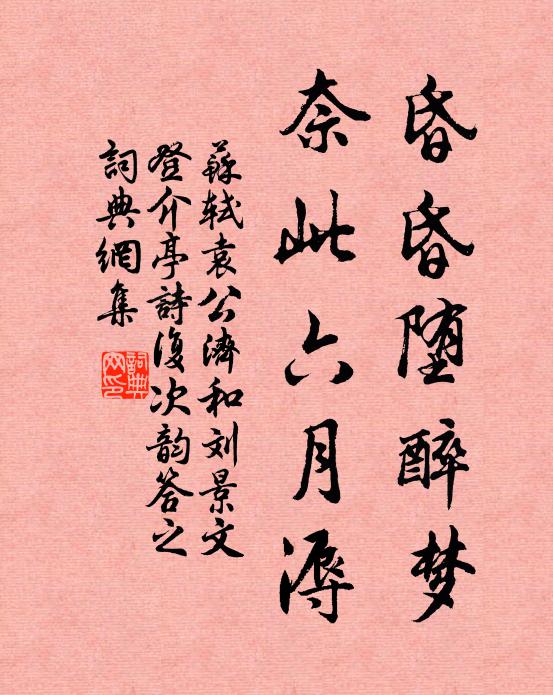 昏昏堕醉梦
奈此六月溽
蘇轼袁公濟和刘景文
登介亭詩復次韵答之
詞典網集
詞典网印